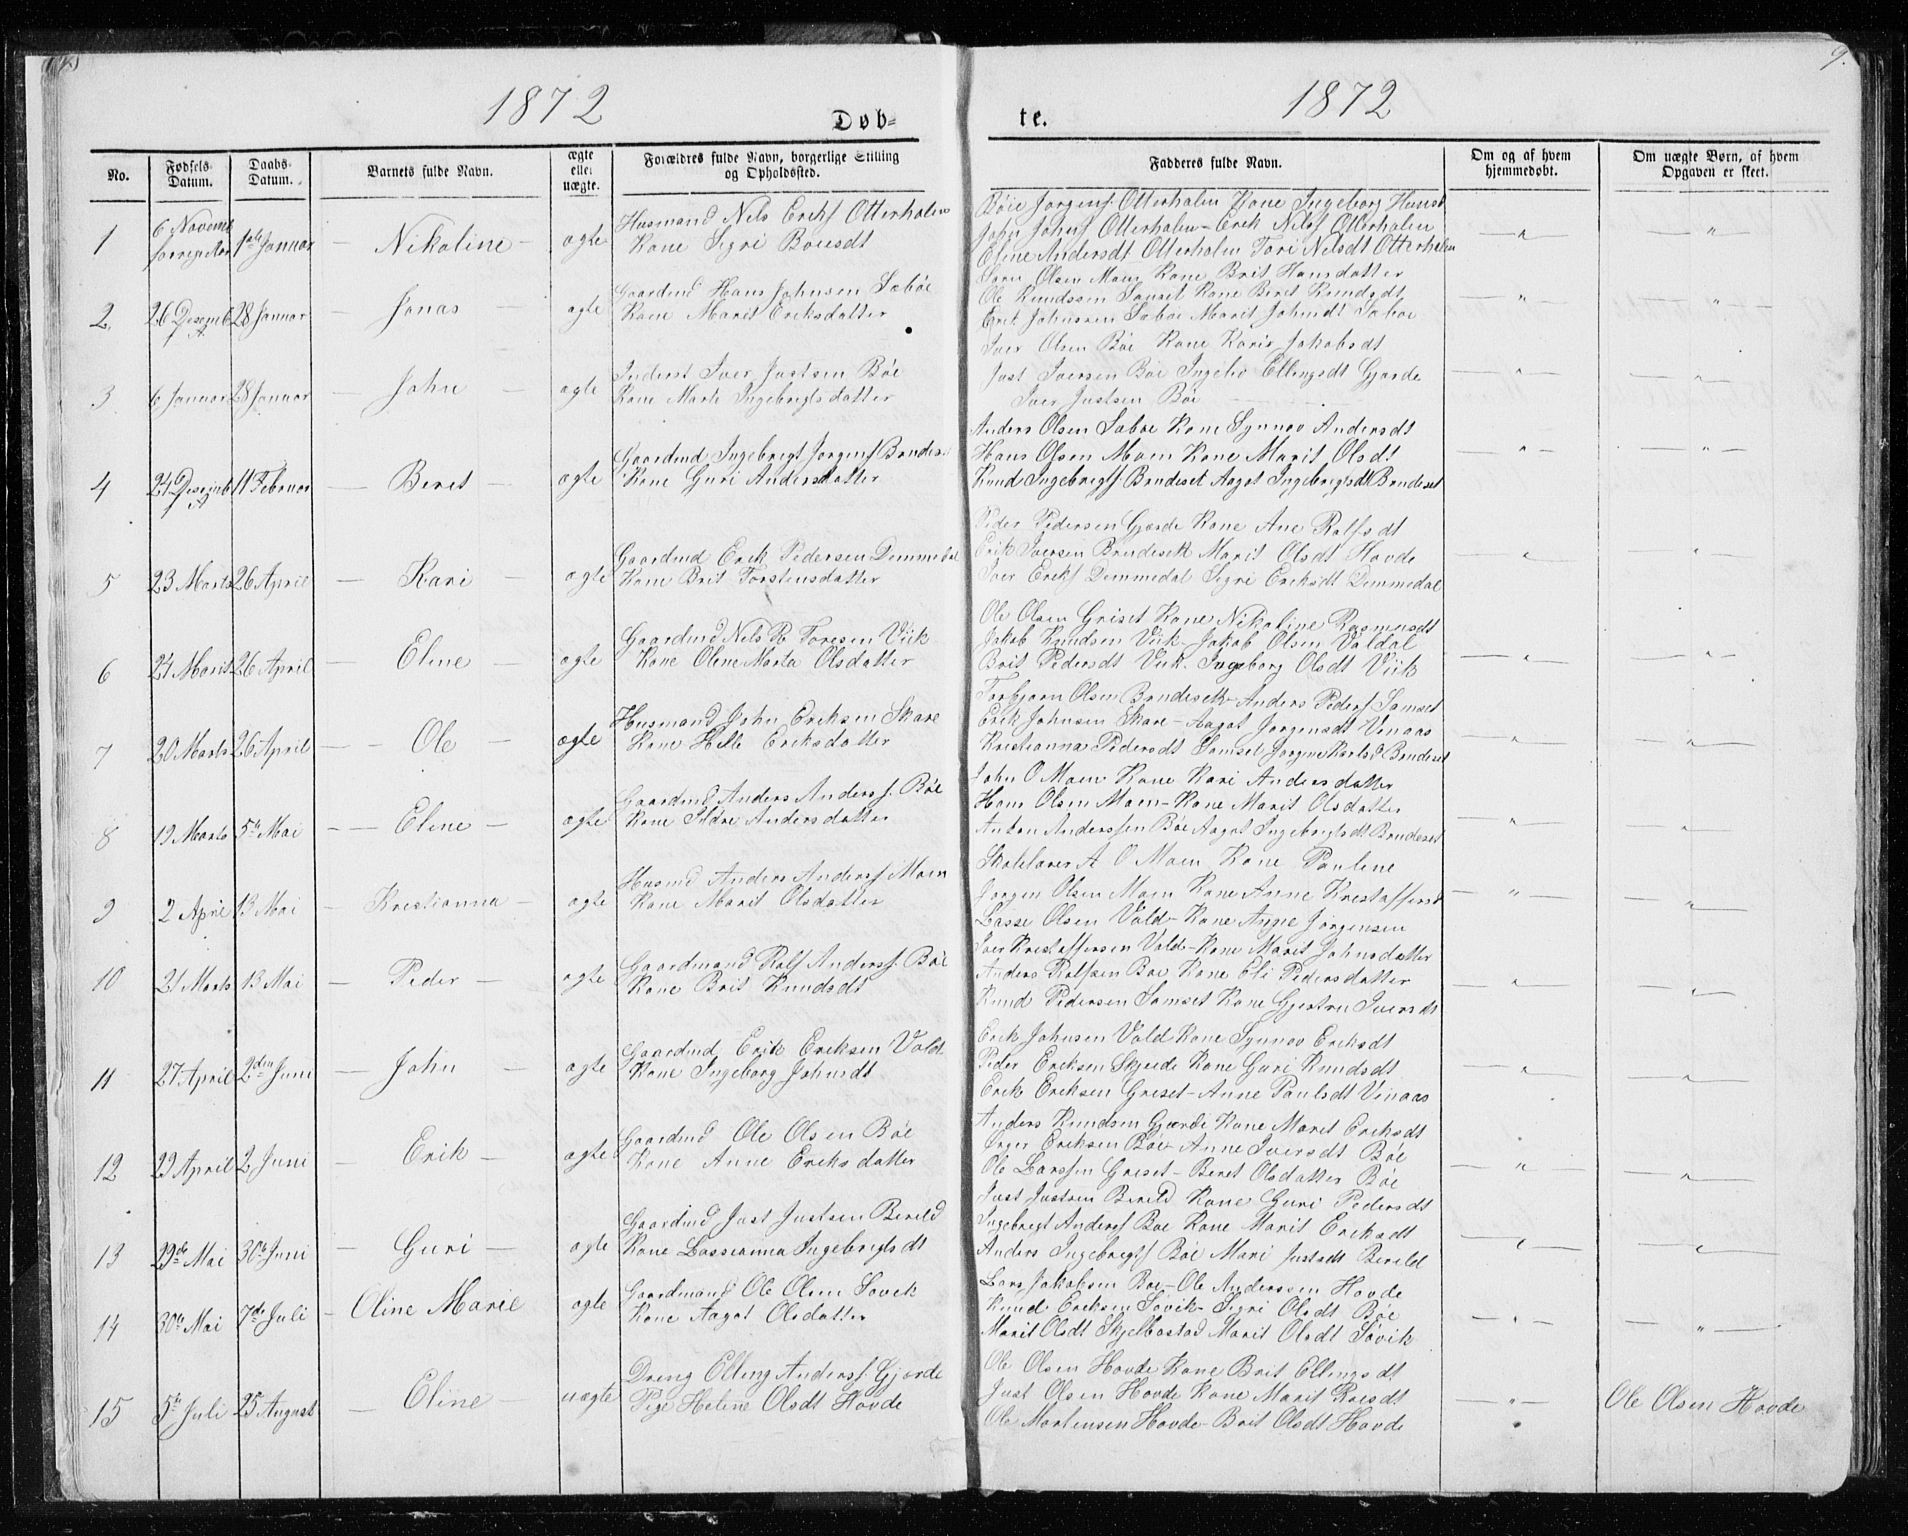 9.
1872
Døb-
te.
1872
No.
Fødsels-Datum.
Daabs-Datum.
Barnets fulde Navn.
ægte eller uægte.
Forældres fulde Navn, borgerlige Stilling og Opholdssted.
Fadderes fulde Navn.
Om og af hvem hjemmedøbt.
Om uægte Børn, af hvem Opgaven er skeet.
1 6 Novemb forrige Aar 1ste Januar Nikoline ægte Husmand Nils Eriks. Otterholen
Kone Sigri Boiesdt
Boie Jørgens. Otterholen Kone Ingeborg
John Johns. Otterholen - Erik Nils. Otterholen
Eline Andersdt Otterholen Tori Nelsdt Otterholen
2 26 Desemb f. A 28 Januar Jonas ægte Gaardmd Hans Johnsen Sæbøe
Kone Marit Eriksdatter
Olsen Moen Kone Brit Hansdatter
Ole Knudssen Sauset Kone Beret Knudsdt
Erik Johnssen Sæbøe Marit Johnsdt Sæbøe
3 6 Januar 28 Januar John ægte Inderst Iver Justsen Bøe
Kone Marte Ingebrigtsdatter
Iver Olsen Bøe Kone Karis Jakobsdt
Just Iversen Bøe Ingebor Ellingsdt Gjærde
Iver Justsen Bøe
4 24 Desemb f. A 11 Februar Beret ægte Gaardmd Ingebrigt Jørgens. Brudeset
Kone Guri Andersdatter
Anders Olsen Sæbøe Kone Synnøv Andersdt
Hans Olsen Moen Kone Marit Olsdt
Knud Ingebrigts. Brudeset Aagot Ingebrigtsdt Brudeset
5 23 Marts 26 April Kari ægte Gaardmd Erik Pedersen Demmedal
Kone Brit Torstensdatter
Peder Pedersen Gjærde Kone Ane Rolfsdt
Erik Iversen Brudeseth Marit Olsdt Hovde
Iver Eriks. Demmedal Sigri Eriksdt Demmedal
6 24 Marts 26 April Eline ægte Gaardmd Nels P. Toresen Viik
Kone Olene Marta Olsdatter
Ole Olsen Griset Kone Nikoline Rasmusdt
Jakob Knudsen Viik - Jakob Olsen Valdal
Brit Pedersdt Viik. Ingeborg Olsdt Viik
7 20 Marts 26 April Ole ægte Husmand John Eriksen Skare
Kone Helle Eriksdatter
Torbjørn Olsen Brudeseth - Anders Peders. Samset
Erik Johnsen Skare - Aagot Jørgensdt Vinaas
Kristianna Pedersdt Samset Brudeset
8 19 Marts 5te Mai Eline ægte Gaardmd Anders Anders. Bøe
Kone Ildre Andersdatter
John O Moen Kone Kari Andersdatter
Hans Olsen Moen - Kone Marit Olsdatter
Anton Anderssen Bøe Aagot Ingebrigtsdt Brudeset
9 2 April 13 Mai Kristianna ægte Husmd Anders Anders. Moen
Kone Marit Olsdatter
Skolelærer A O Moen Kone Pauline
Jørgen Olsen Moen Kone Anne Kristaffersd
Lasse Olsen Vold - Kone Anne Jørgensen
10 21 Marts 13 Mai Peder ægte Gaardmand Rolf Anders. Bøe
Kone Brit Knudsdt
Iver Kristaffersen Vold - Kone Marit Johnsdatter
Anders Rolfsen Bøe Kone Eli Pedersdatter
Knud Pedersen Samset Kone Gjertru Iversdt
11 27 April 2den Juni John ægte Gaardmd Erik Eriksen Vold
Kone Ingeborg Johnsdt
Erik Johnsen Vold Kone Synnøv Eriksdt
Peder Eriksen Skjeide Kone Guri Knudsdt
Erik Eriksen Griset - Anne Paulsdt Vinaas
12 29 April 2 Juni Erik ægte Gaardmd Ole Olsen Bøe
Kone Anne Eriksdatter
Anders Knudsen Gjærde Kone Marit Eriksdt
Eriksen Bøe Anne Iversdt Bøe
Ole Larssen Griset - Beret Olsdatter Bøe
13 29de Mai 30te Juni Guri ægte Gaardmd Just Justsen Berild
Kone Lassianna Ingebrigtsdt
Just Justsen Berild Kone Guri Pedersdt
Ingebrigt Anders. Bøe Kone Marit Eriksdt
Anders Ingebrigts. Bøe Mari Justsdt Berild
14 30te Mai 7de Juli Oline Marie ægte Gaardmand Ole Olsen Sovik
Kone Aagot Olsdatter
Lars Jakobsen Bøe - Ole Anderssen Hovde
Knud Eriksen Sovik - Sigri Olsdt Bøe
Marit Olsdt Skjelbostad Marit Olsdt Søvik
15 5te Juli 25 August Eline uægte Dreng Elling Anders. Gjærde
Pige Heline Olsdt Hovde
Ole Olsen Hovde Kone Brit Ellingsdt
Just Olsen Hovde Kone Marit
Ole Mortensen Hovde - Brit Olsdt Hovde
Ole Olsen Hovde